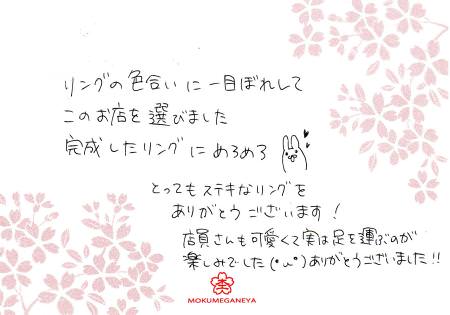 リングの色合いに一目ぼれして
このお店を選びました
完成したリングにめろめろ
とってもステキなリングを
ありがとうございます!
店員さんも可愛くて実は足を運ぶのが
楽しみでした(°ω°)ありがとうございました!!
MOKUMEGANEYA